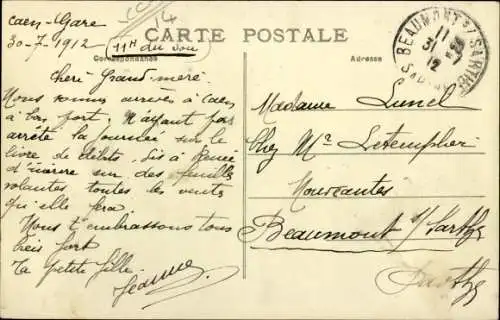 Caen-Gare
30-7-1912
11H du soir
14
CARTE POSTALE
Correspondance
Adresse
BEAUMONT S/ SARTHE
11
31 - 7
12
SARTHE
Cheri Grand-mère
Nous sommes arrivés à Caen
à bon port, N'ayant pas
arrêté la journée sur le
livre de débits, dis à Renée
d'inscrire sur des feuilles
volantes toutes les ventes
qu'elle fera
Nous t'embrassons tous
bien fort
Ta petite fille
Jeanne
Madame Lunel
Chez Mr Letemplier
Nouveautés
Beaumont s/Sarthe
Sarthe